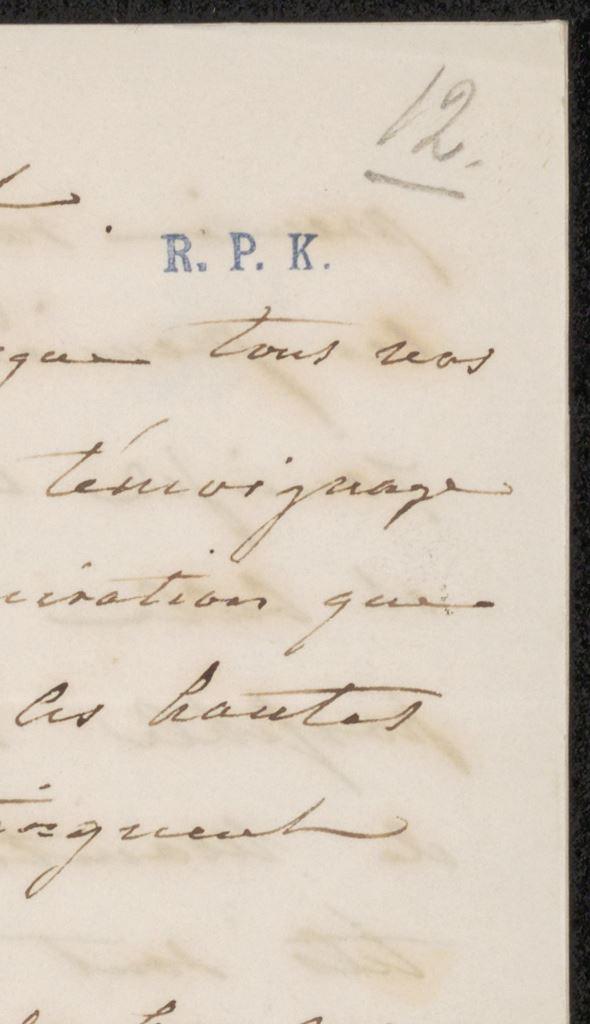 12.
R. P. K.
que tous nos
témoignage
iration que
les hautes
tinguent